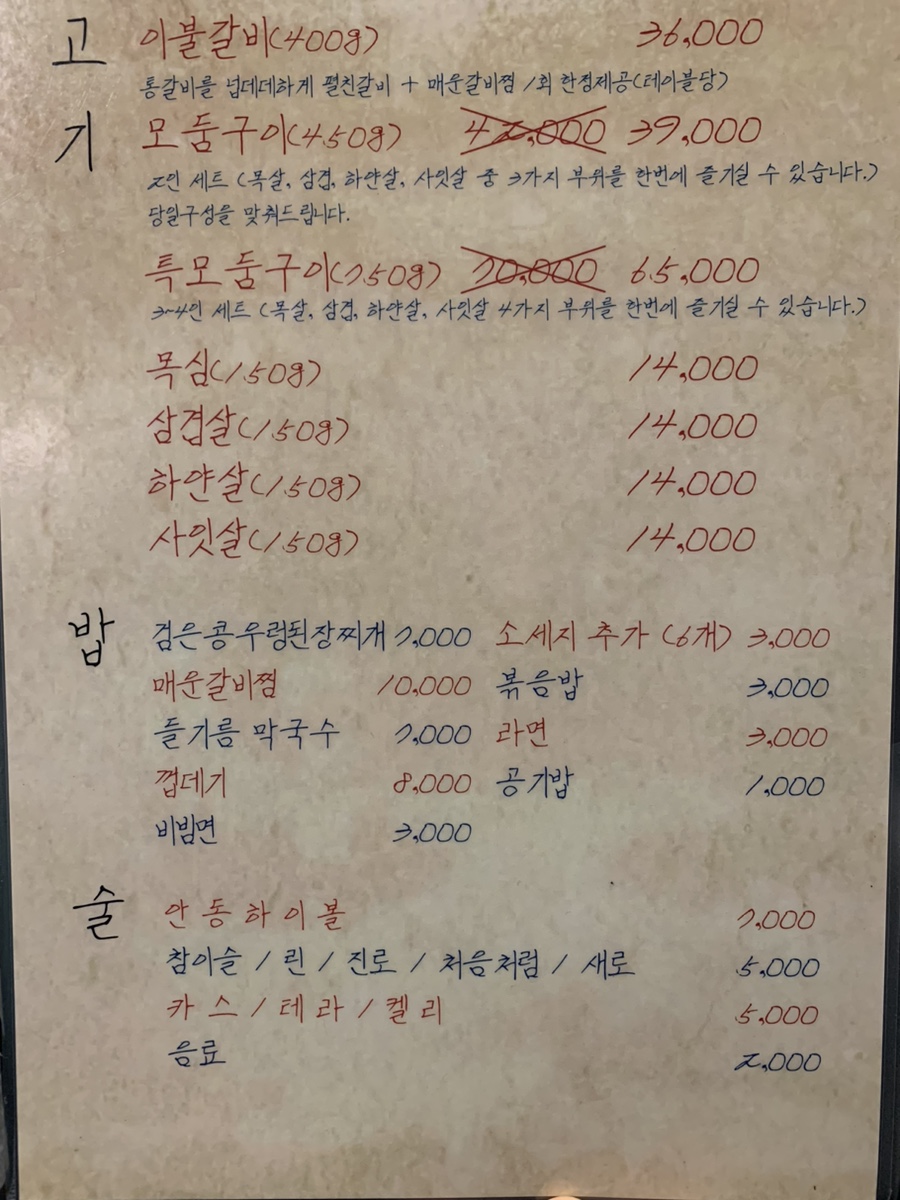 고 이불갈비(400g) 36,000
통갈비를 넙데데하게 펼친갈비 + 매운갈비찜 1회 한정제공(테이블당)
기 모둠구이(450g) 42,000 39,000
2인 세트 (목살, 삼겹, 하얀살, 사잇살 중 3가지 부위를 한번에 즐기실 수 있습니다.)
당일구성을 맞춰드립니다.
특모둠구이(750g) 70,000 65,000
3~4인 세트 (목살, 삼겹, 하얀살, 사잇살 4가지 부위를 한번에 즐기실 수 있습니다.)
목심(150g) 14,000
삼겹살(150g) 14,000
하얀살(150g) 14,000
사잇살(150g) 14,000
밥 검은콩우렁된장찌개 7,000 소세지 추가 (6개) 3,000
매운갈비찜 10,000 볶음밥 3,000
들기름 막국수 7,000 라면 3,000
껍데기 8,000 공기밥 1,000
비빔면 3,000
술 안동하이볼 7,000
참이슬 / 린 / 진로 / 처음처럼 / 새로 5,000
카스 / 테라 / 켈리 5,000
음료 2,000